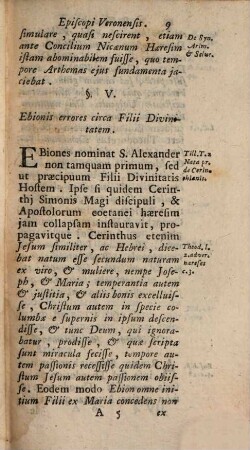 Episcopi Veronensis. 9
simulare, quasi nescirent, etiam
ante Concilium Nicænum Hæresim
istam abominabilem fuisse, quo tem-
pore Arthemas ejus fundamenta ja-
ciebat.
De Syn.
Arim.
& Seleuc.
§. V.
Ebionis errores circa Filii Divini-
tatem.
EBiones nominat S. Alexander
non tamquam primum, sed
ut præcipuum Filii Divinitatis
Hostem. Ipse si quidem Cerin-
thj Simonis Magi discipuli, &
Apostolorum coetanei hæresim
jam collapsam instauravit, pro-
pagavitque. Cerinthus etenim
Jesum similiter, ac Hebrei, dice-
bat natum esse secundum naturam
ex viro, & muliere, nempe Jose-
ph, & Maria; temperantia autem
& justitia, & aliis bonis excelluis-
se, Christum autem in specie co-
lumbæ e supernis in ipsum descen-
disse, & tunc Deum, qui ignora-
batur, prodisse, & quæ scripta
sunt miracula fecisse, tempore au-
tem passionis recessisse quidem Chri-
stum Jesum autem passionem obiis-
se. Eodem modo Ebion omne ini-
tium Filii ex Maria concedens non
Till. T. 2.
Nota pr.
de Cerin-
thianis.
Theod. l.
2. adver.
hæreses
c. 3.
A 5 ex